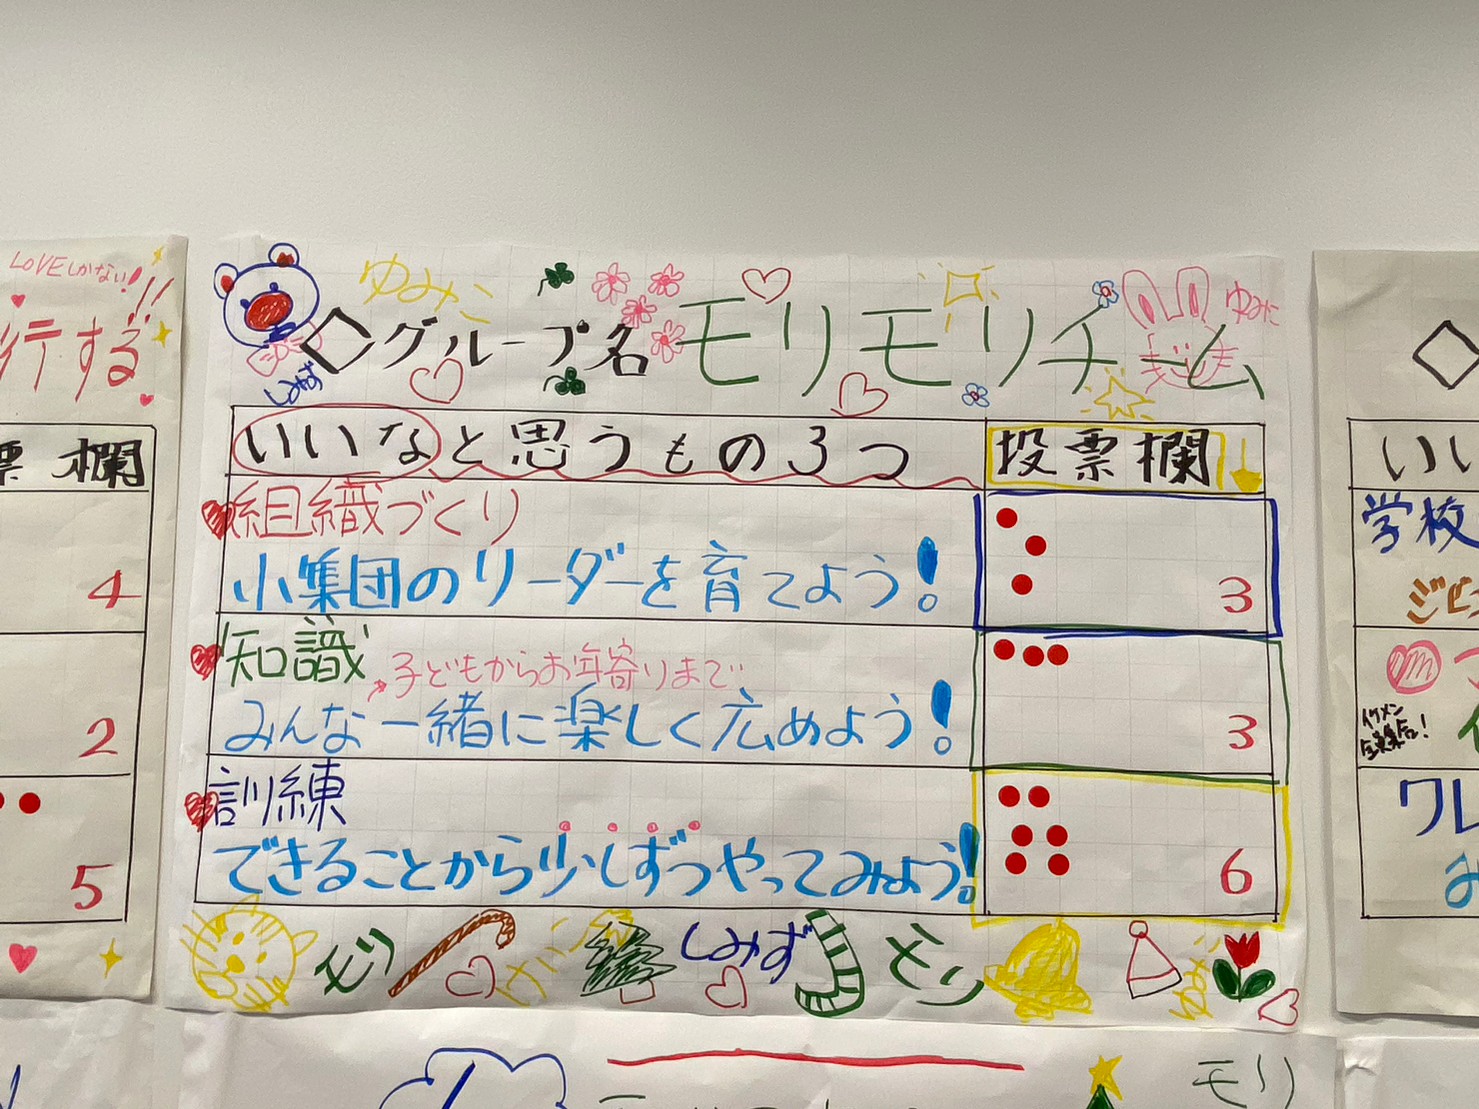 LOVEしかない!!!
行する
票欄
4
2
5
ゆみこ
◇グループ名 モリモリチーム
ゆみた
いいなと思うもの3つ 投票欄
組織づくり
小集団のリーダーを育てよう! 3
知識
子どもからお年寄りまで
みんな一緒に楽しく広めよう! 3
訓練
できることから少しずつやってみよう! 6
モリ しみず モリ
◇
いい
学校
イケメン
全員集合!
ワレ
モリ